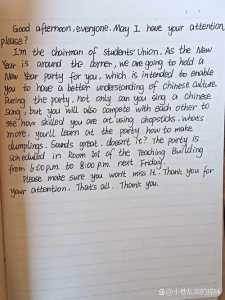 Good afternoon, everyone. May I have your attention,
please?
I'm the chairman of Students' Union. As the New
Year is around the corner, we are going to hold a
New Year party for you, which is intended to enable
you to have a better understanding of Chinese culture.
During the party, not only can you sing a Chinese
song, but you will also compete with each other to
see how skilled you are at using chopsticks. What's
more, you'll learn at the party how to make
dumplings. Sounds great, doesn't it? The party is
scheduled in Room 101 of the Teaching Building
from 6:00 p.m. to 8:00 p.m. next Friday.
Please make sure you won't miss it. Thank you for
your attention. That's all. Thank you.